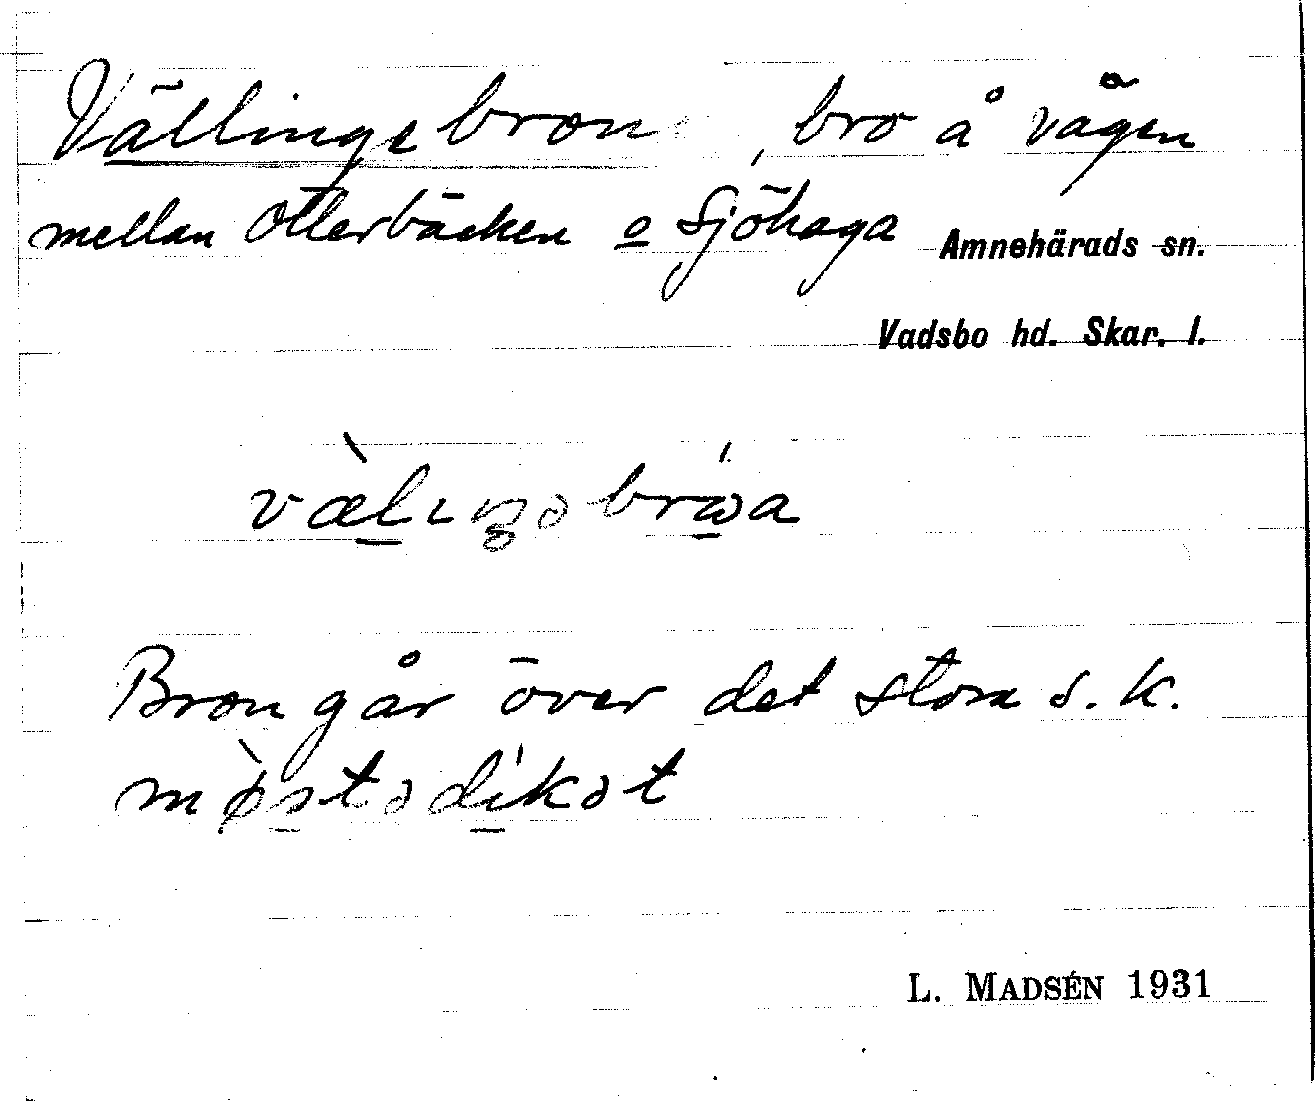 Vällingebron, bro å vägen
mellan Otterbäcken o Sjöhaga
Amnehärads sn.
Vadsbo hd. Skar. l.
væ̀lıŋəbrω̍a
Bron går över det stora s. k.
mø̀stədi̍kət
L. MADSÉN 1931